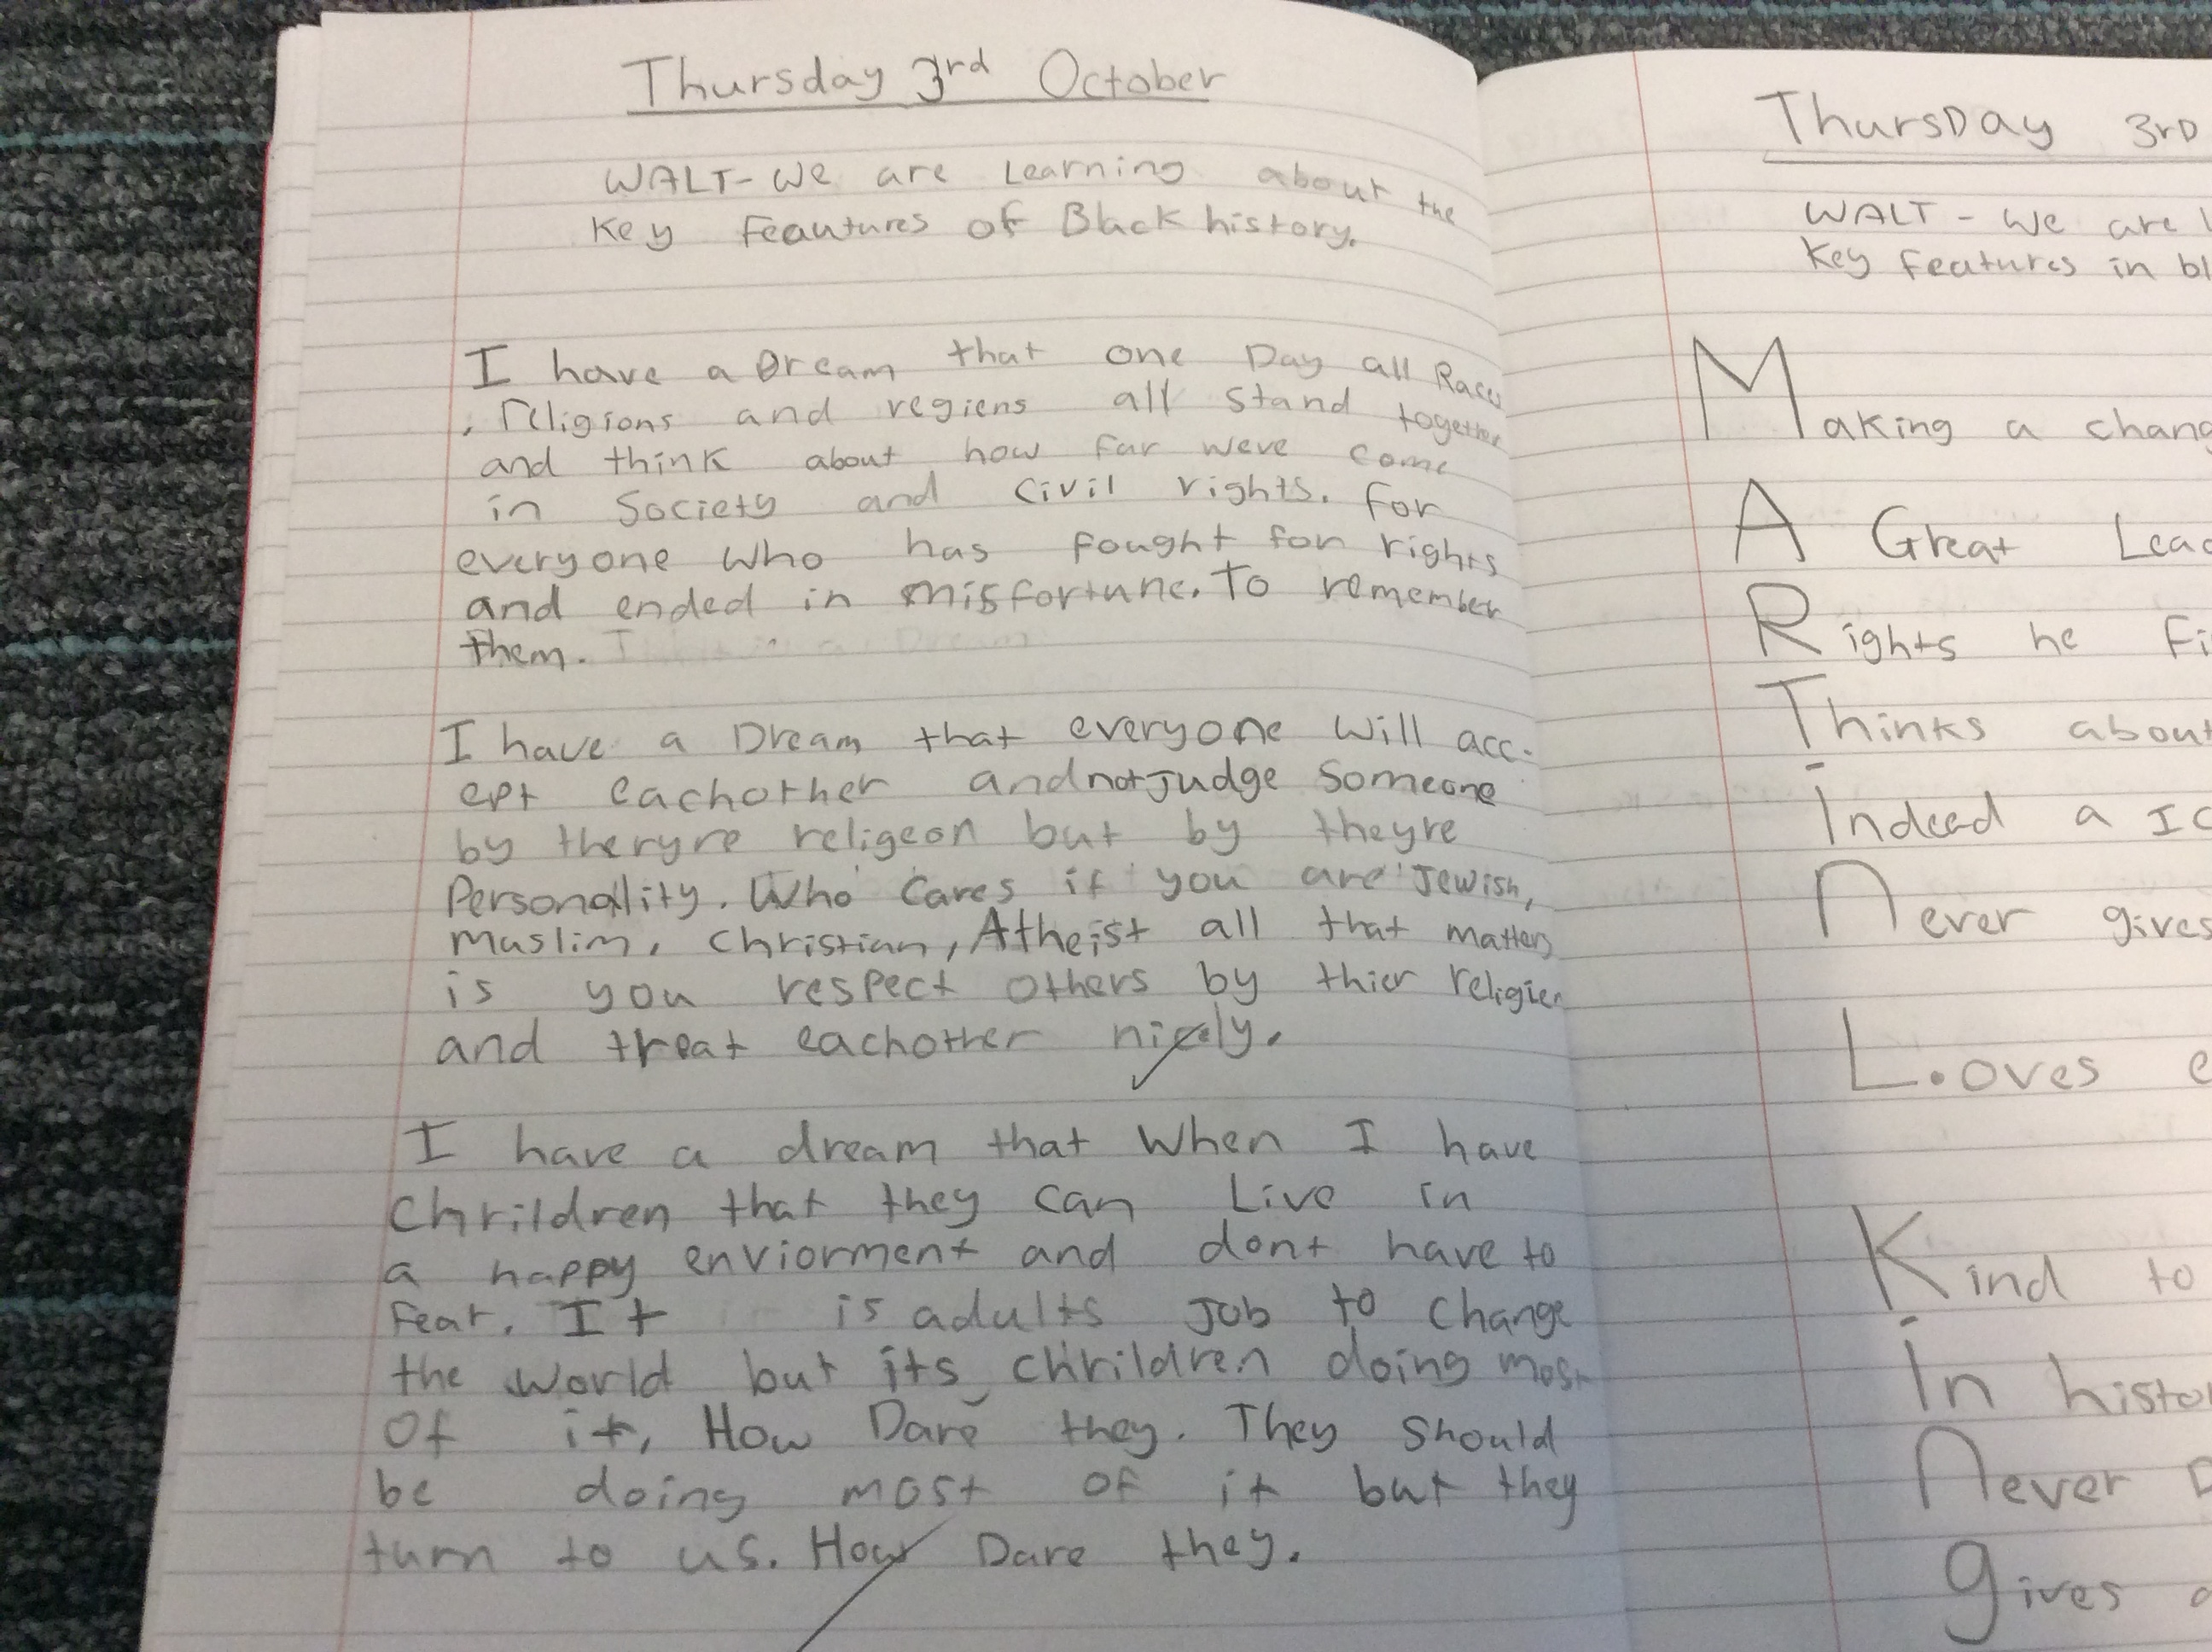 Thursday 3rd October
WALT-We are Learning about the
Key Feautures of Black history.
I have a Dream that one Day all Races
, religions and regiens all stand together
and think about how far weve come
in Society and Civil rights. For
everyone who has fought for rights
and ended in misfortune. To remember
them.
I have a Dream that everyone will acc-
ept eachother and not Judge Someone
by theryre religeon but by theyre
Personality. Who Cares if you are Jewish,
muslim, Christian, Atheist all that matters
is you respect others by thier religien
and treat eachother nicely.
I have a dream that when I have
Chrildren that they can Live in
a happy enviorment and dont have to
Fear. It is adults Job to Change
the world but its chrildren doing most
Of it, How Dare they. They Should
be doing most of it but they
turn to us. How Dare they.
ThursDay 3rD
WALT - We are
Key Features in bl
Making a chang
A Great Lead
Rights he Fi
Thinks about
Indeed a IC
Never gives
L.oves e
Kind to
In histor
Never D
gives a